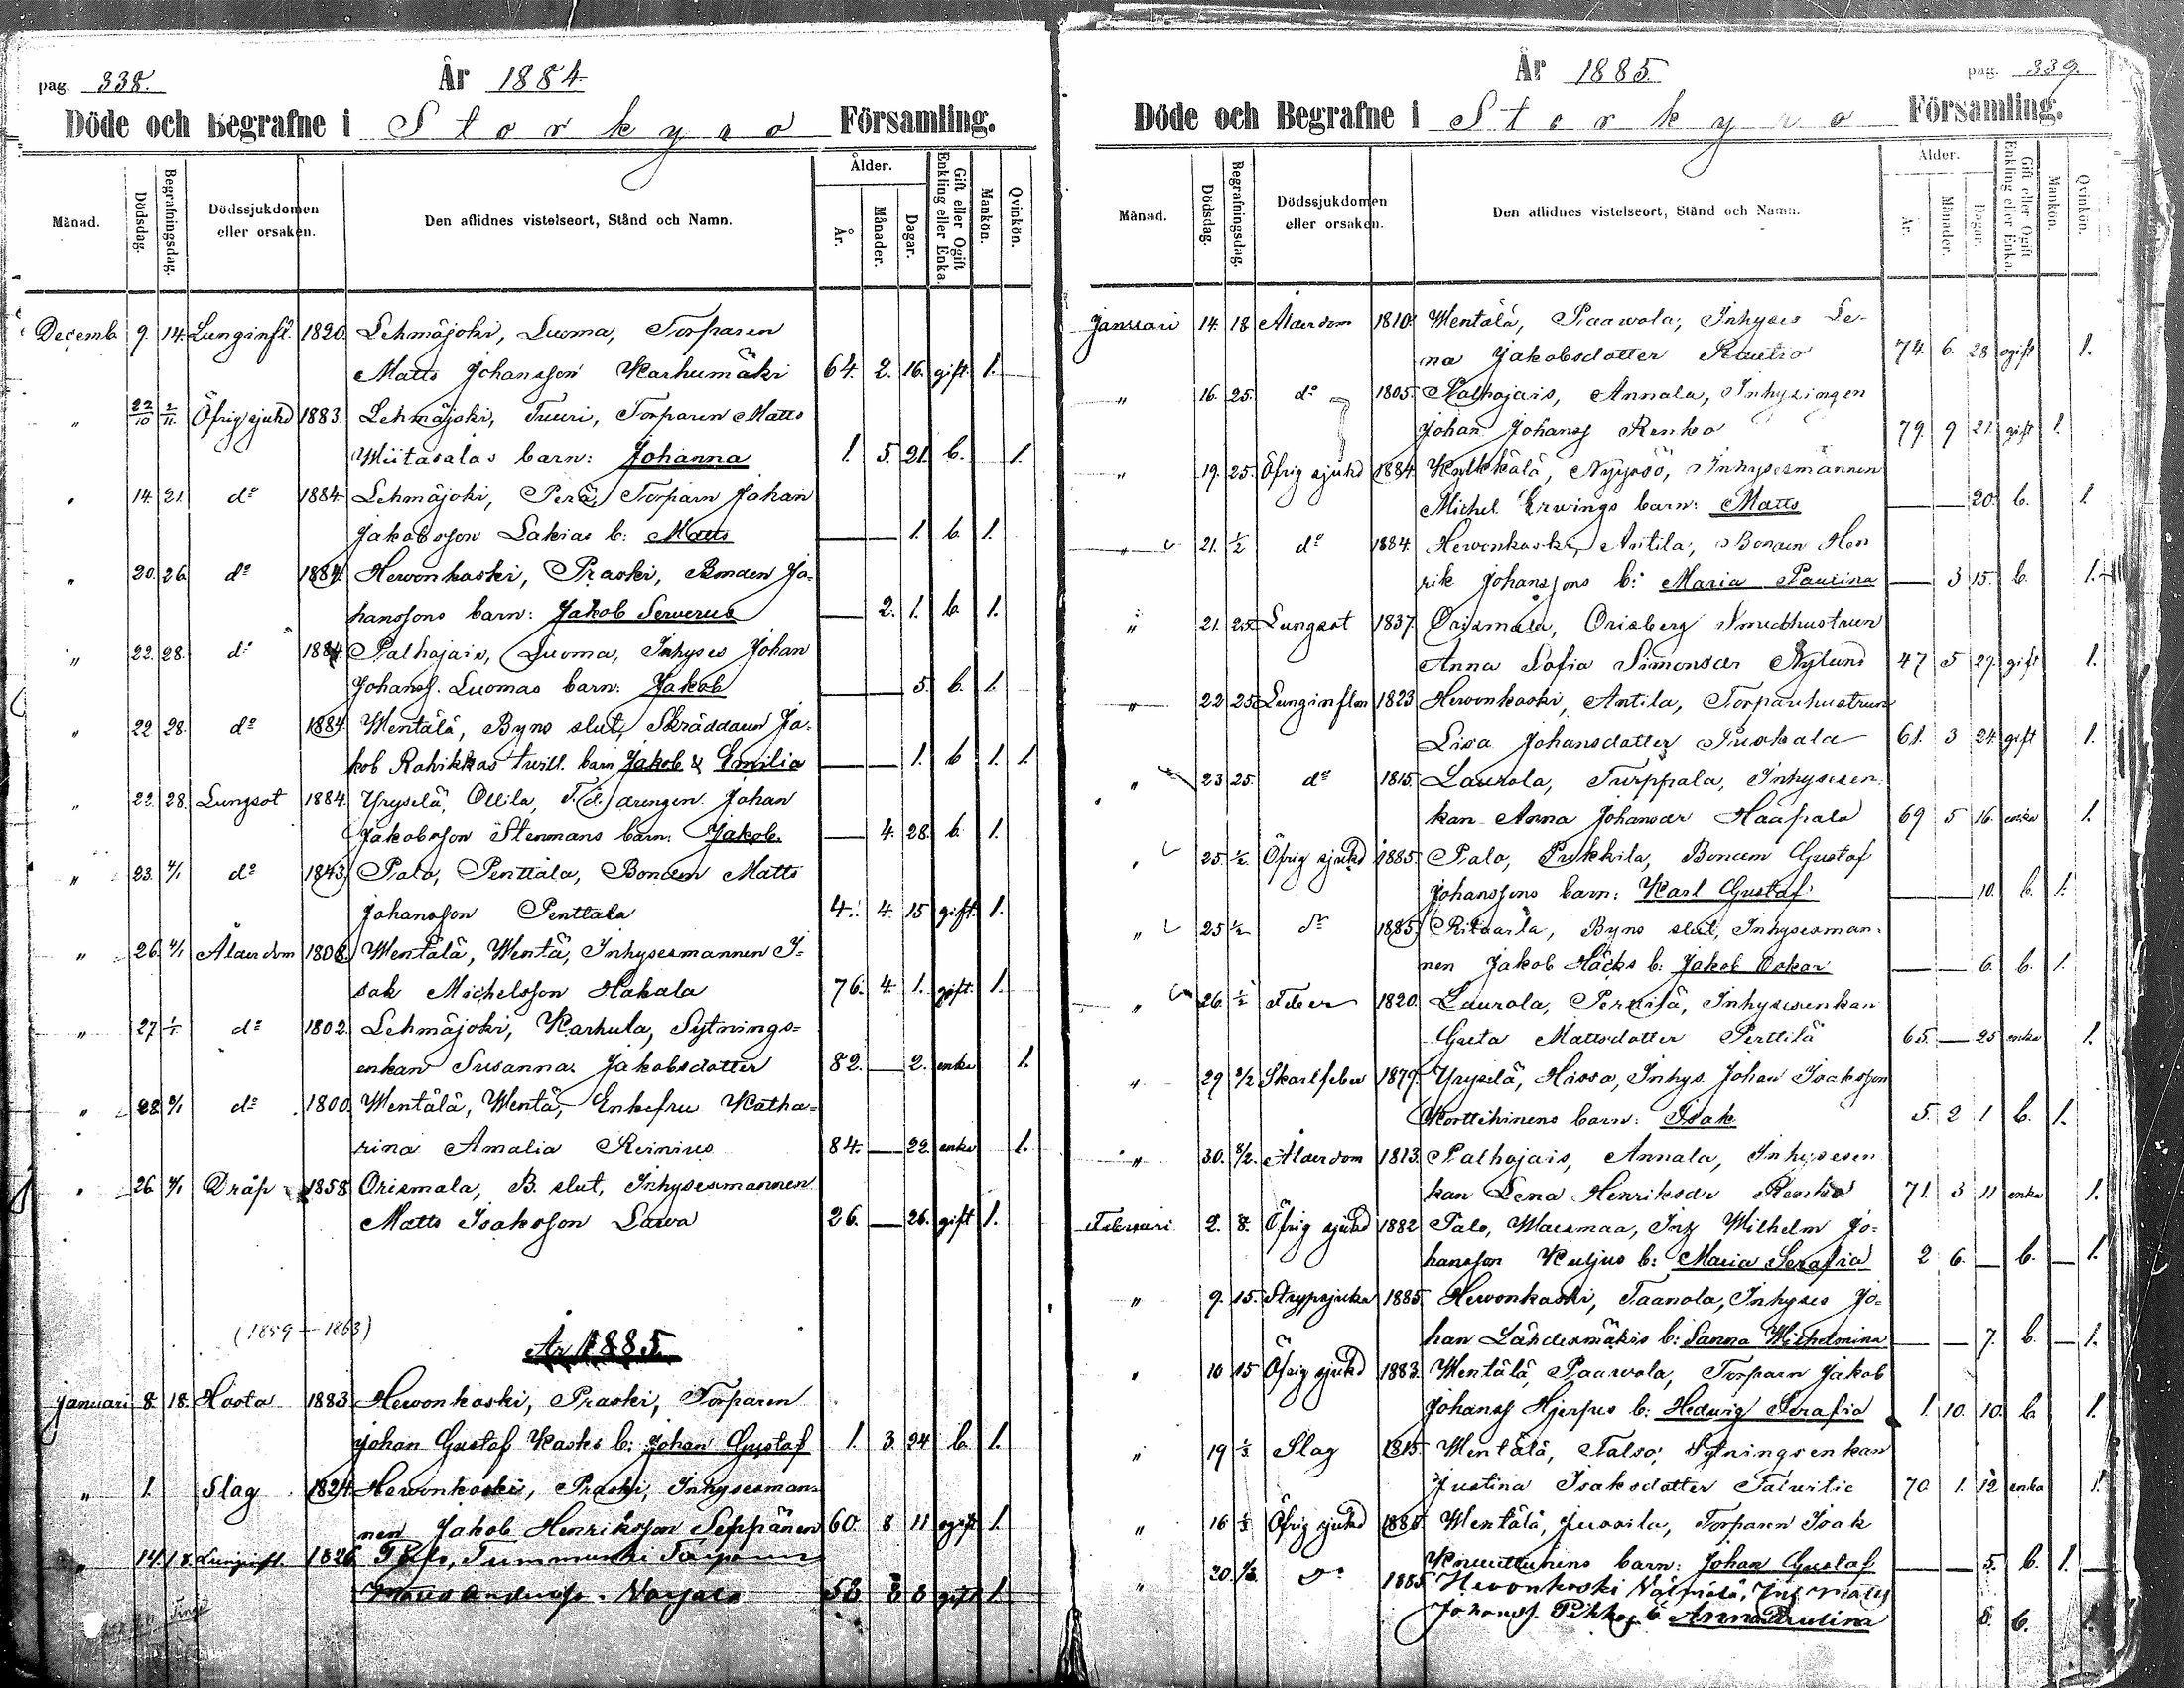 pag. 338.
År 1884
Döde och Begrafne i Storkyro Församling.
Månad.
Dödsdag.
Begrafningsdag.
Dödssjukdomen eller orsaken.
Den aflidnes vistelseort, Stånd och Namn.
Ålder.
År.
Månader.
Dagar.
Gift eller Ogift Enkling eller Enka.
Mankön.
Qvinkön.
Decemb 9. 14. Lunginfl. 1820. Lehmäjoki, Luoma, Torparen
Matts Johansson Karhumäki 64. 2. 16. gift. 1.
" 22/10 2/11 Öfrig sjukd 1883. Lehmäjoki, Tuuri, Torparen Matts
Wiitasalas barn: Johanna 1. 5. 21. b. 1.
" 14. 21. do 1884 Lehmäjoki, Perä, Torparn Johan
Jakobsson Lakias b: Matts 1. b. 1.
" 20. 26 do 1884. Hevonkoski, Praski, Bonden Jo=
hanssons barn: Jakob Serverus 2. 1. b. 1.
" 22. 28. do 1884 Palhojais, Luoma, Inhyses Johan
Johanss. Luomas barn: Jakob 5. b. 1.
" 22 28. do 1884. Wentälä, Byns slut, Skräddaren Ja-
kob Rahikkas twill. barn Jakob & Emilia 1. b 1. 1.
" 22. 28. Lungsot 1884. Yryselä, Ollila, T. d. drengen Johan
Jakobsson Stenmans barn: Jakob. 4. 28. b. 1.
" 23. 4/1 do 1843. Palo, Penttala, Bonden Matts
Johansson Penttala 4. 4. 15 gift. 1.
" 26. 4/1 Ålderdom 1808. Wentälä, Wentä, Inhysesmannen I-
sak Michelsson Hakala 76. 4. 1. gift. 1.
" 27 1/1 do 1802. Lehmäjoki, Karhula, Sytnings=
enkan Susanna Jakobsdotter 82. 2. enka 1.
" 28 do 1800. Wentälä, Wentä, Enkefru Katha=
rina Amalia Reinius 84. 22. enka 1.
" 26 4/1 Dråp 1858 Orismala, B. slut, Inhysesmannen
Matts Isaksson Lawa 26. 26. gift 1.
(1859 - 1863)
År 1885.
Januari 8. 18. Hosta 1883 Hevonkoski, Praski, Torparen
Johan Gustaf Kasks b: Johan Gustaf 1. 3. 24 b. 1.
" 1. Slag 1824. Hevonkoski, Praski, Inhysesman-
nen Jakob Henriksson Seppänen 60. 8 11 ogift 1.
" 14. 18. Lunginfl. 1826 Palo, Torparen
Matts Anderss. 58 8 8 gift 1.
År 1885
pag. 339.
Döde och Begrafne i Storkyro Församling.
Månad.
Dödsdag.
Begrafningsdag.
Dödssjukdomen eller orsaken.
Den aflidnes vistelseort, Stånd och Namn.
Ålder.
År.
Månader.
Dagar.
Gift eller Ogift Enkling eller Enka.
Mankön.
Qvinkön.
Januari 14. 18 Ålderdom 1810. Wentälä, Paawola, Inhyses Le-
na Jakobsdotter Rautio 74. 6. 28 ogift 1.
" 16. 25. do 1805. Palhojais, Annala, Inhysingen
Johan Johanss Renko 79. 9 21. gift 1.
" 19. 25. Öfrig sjukd 1884 Kylkkälä, Nyysö, Inhysesmannen
Michel Erwings barn: Matts 20. b. 1.
" 21. 1/2 do 1884. Hevonkoski, Antila, Bonden Hen
rik Johanssons b: Maria Paulina 3 15. b. 1.
" 21. 25 Lungsot 1837 Orismala, Orisberg Smedhustrun
Anna Sofia Simonsdr Nylund 47 5 27. gift 1.
" 22 25 Lunginflm 1823 Hevonkoski, Antila, Torparhustrun
Lisa Johansdotter 61. 3 24 gift 1.
" 23 25. do 1815. Laurola, Turppala, Inhysesen
kan Anna Johansdr Haapala 69 5 16. enka 1.
" 25. 1/2. Öfrig sjukd 1885. Palo, Pukkila, Bonden Gustaf
Johanssons barn: Karl Gustaf 10. b. 1.
" 25 1/2 do 1885. Ritaarla, Byns slut, Inhysesman-
nen Jakob Häcks b: Jakob Oskar 6. b. 1.
" 26. 1/2 Feber 1820. Laurola, Perttilä, Inhysesenkan
Greta Mattsdotter Perttilä 65. 25 enka 1.
" 29 8/2 Skarlfeber 1879. Yryselä, Hissa, Inhys. Johan Isaksson
Korttihinens barn: Isak 5. 2 1 b. 1.
" 30. 8/2. Ålderdom 1813. Palhojais, Annala, Inhysesen
kan Lena Henriksdr Renko 71. 3 11 enka 1.
Februari 2. 8. Öfrig sjukd 1882 Palo, Waismaa, Inh Wilhelm Jo=
hansson Kuljus b: Maria Serafia 2 6. b. 1.
" 9. 15. Strypsjuka 1885. Hevonkoski, Taanola, Inhyses Jo=
han Lähdesmäkis b: Sanna Wilhelmina 7. b. 1.
" 10 15 Öfrig sjukd 1883. Wentälä, Paawola, Torparn Jakob
Johanss Hjerpes b: Hedwig Serafia 1. 10. 10. b. 1.
" 19 1/3 Slag 1815 Wentälä, Talso, Sytningsenkan
Justina Isaksdotter 70 1. 12 enka 1.
" 16 1/3 Öfrig sjukd 1885 Wentälä, Jussila, Torparn Isak
Knuuttinens barn: Johan Gustaf 5. b. 1.
" 20. 1/3. do 1885 Hevonkoski, Inh Matts
Johanss. b. Anna Paulina 8. b. 1.